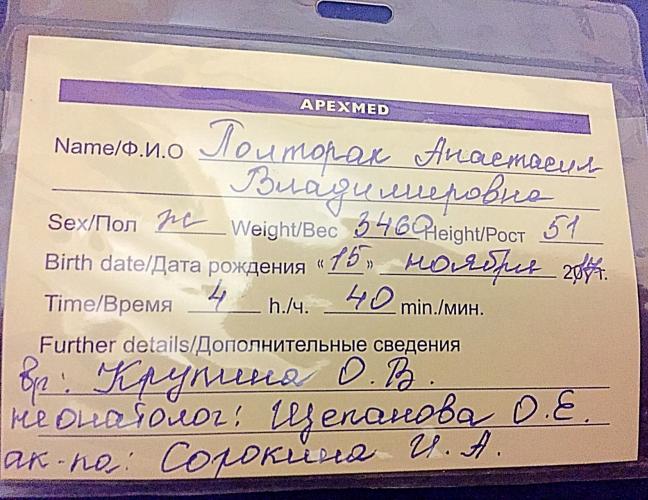 APEXMED
Name/Ф.И.О Полторак Анастасия
Владимировна
Sex/Пол ж Weight/Вес 3460 Height/Рост 51
Birth date/Дата рождения «15» ноября 2017г.
Time/Время 4 h./ч. 40 min./мин.
Further details/Дополнительные сведения
вр: Крупина О.В.
неонатолог: Щепанова О.Е.
ак-ка: Сорокина И.А.